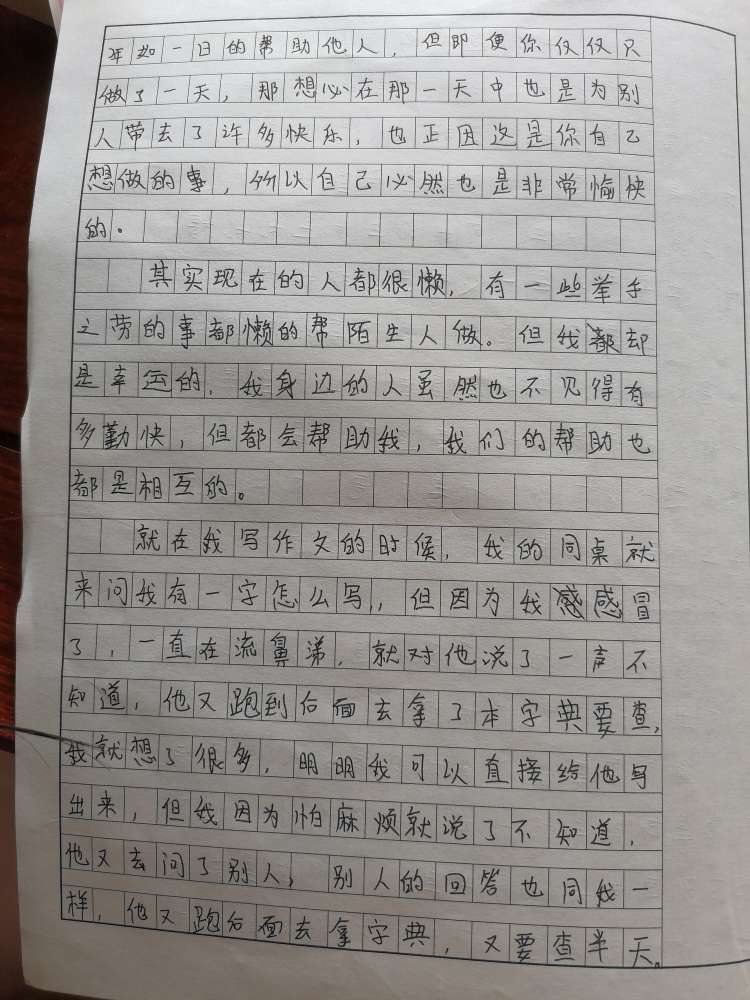 年如一日的帮助他人，但即便你仅仅只
做了一天，那想必在那一天中也是为别
人带去了许多快乐，也正因这是你自己
想做的事，所以自己必然也是非常愉快
的。
其实现在的人都很懒，有一些举手
之劳的事都懒的帮陌生人做。但我都却
是幸运的，我身边的人虽然也不见得有
多勤快，但都会帮助我，我们的帮助也
都是相互的。
就在我写作文的时候，我的同桌就
来问我有一字怎么写，但因为我感感冒
了，一直在流鼻涕，就对他说了一声不
知道，他又跑到后面去拿了本字典要查，
我就想了很多，明明我可以直接给他写
出来，但我因为怕麻烦就说了不知道，
他又去问了别人，别人的回答也同我一
样，他又跑后面去拿字典，又要查半天。